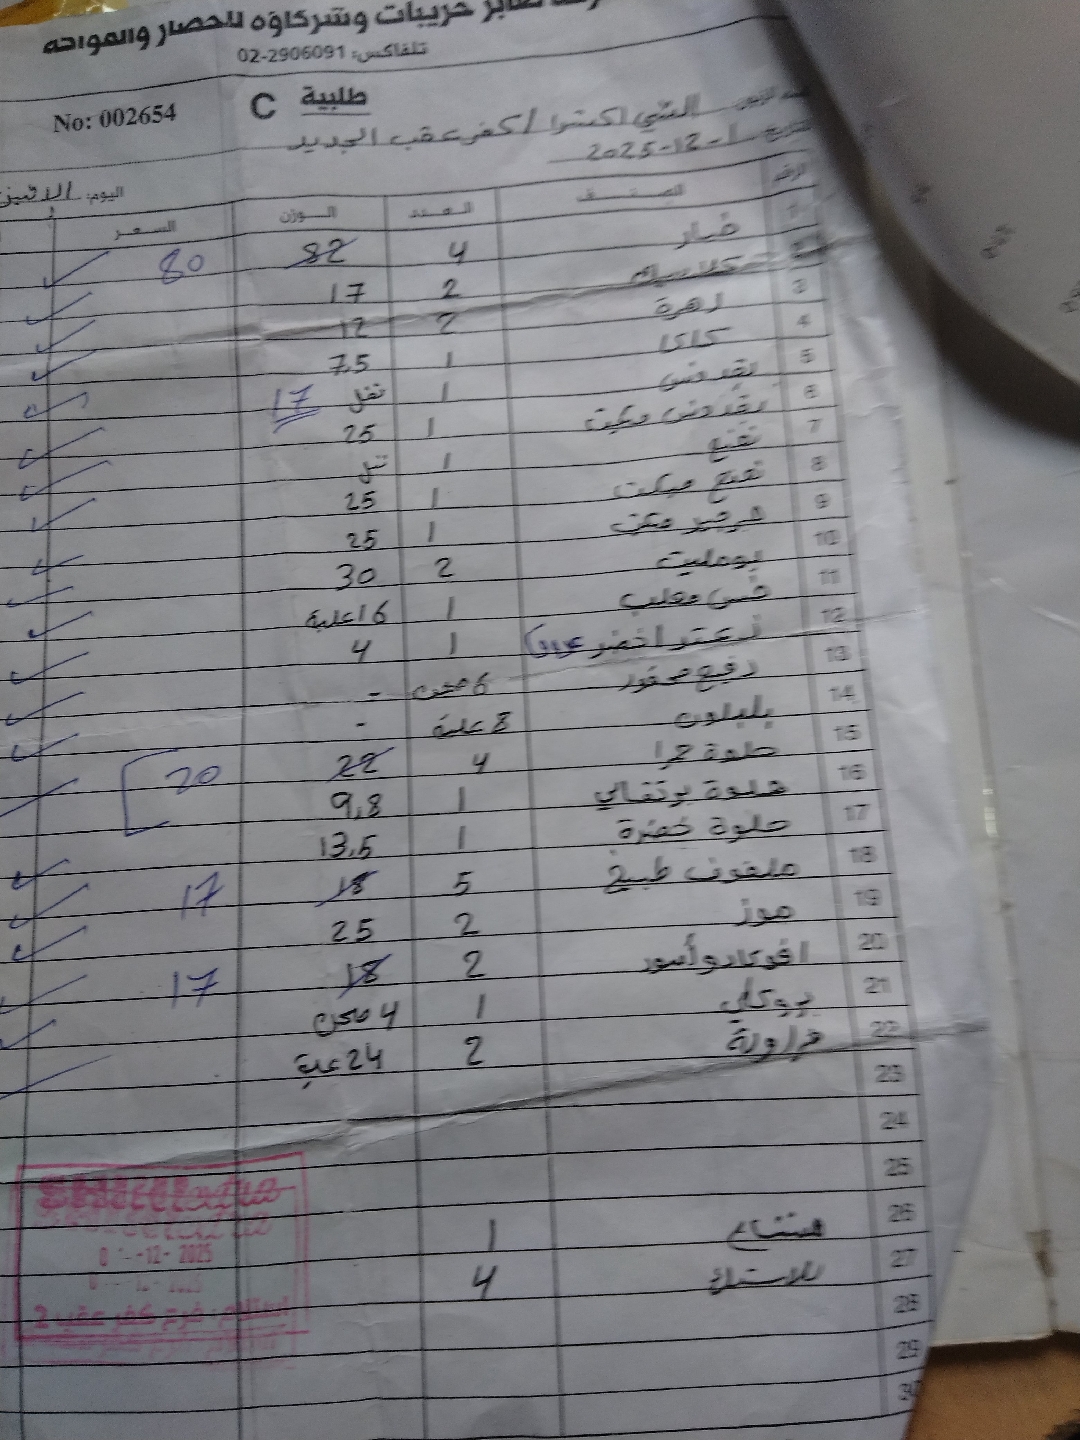 صابر حريبات وشركاؤه للخضار والفواكه
تلفاكس: 02-2906091
No: 002654
C طلبية
الشني اكسترا / كفر عقب الجديد
التاريخ 2025-12-1
اليوم: الاثنين
الرقم الصنف العدد الوزن السعر
1 خيار 4 82 80
2 كلاسيك 2 17
3 زهرة 2 12
4 كاكا 1 7.5
5 بقدونس 1 نفل 17
6 بقدونس مكيت 1 25
7 نعنع 1
8 نعنع مبكت 1 25
9 جرجير مكت 1 25
10 بومليت 2 30
11 خس معلب 1 16 علبة
12 زعتر اخضر 1 4
13 6 -
14 8 علبة -
15 حلوة حمرا 4 22 20
16 حلوة برتقالي 1 9,8
17 حلوة خضرة 1 13,5
18 ملفوف طبيخ 5 18 17
19 موز 2 25
20 افوكادو أسود 2 18 17
21 بروكلي 1 4
22 فراولة 2 24 علبة
23
24
25
26 1
27 4
28
29
30
-12- 2025
فرع كفر عقب 2